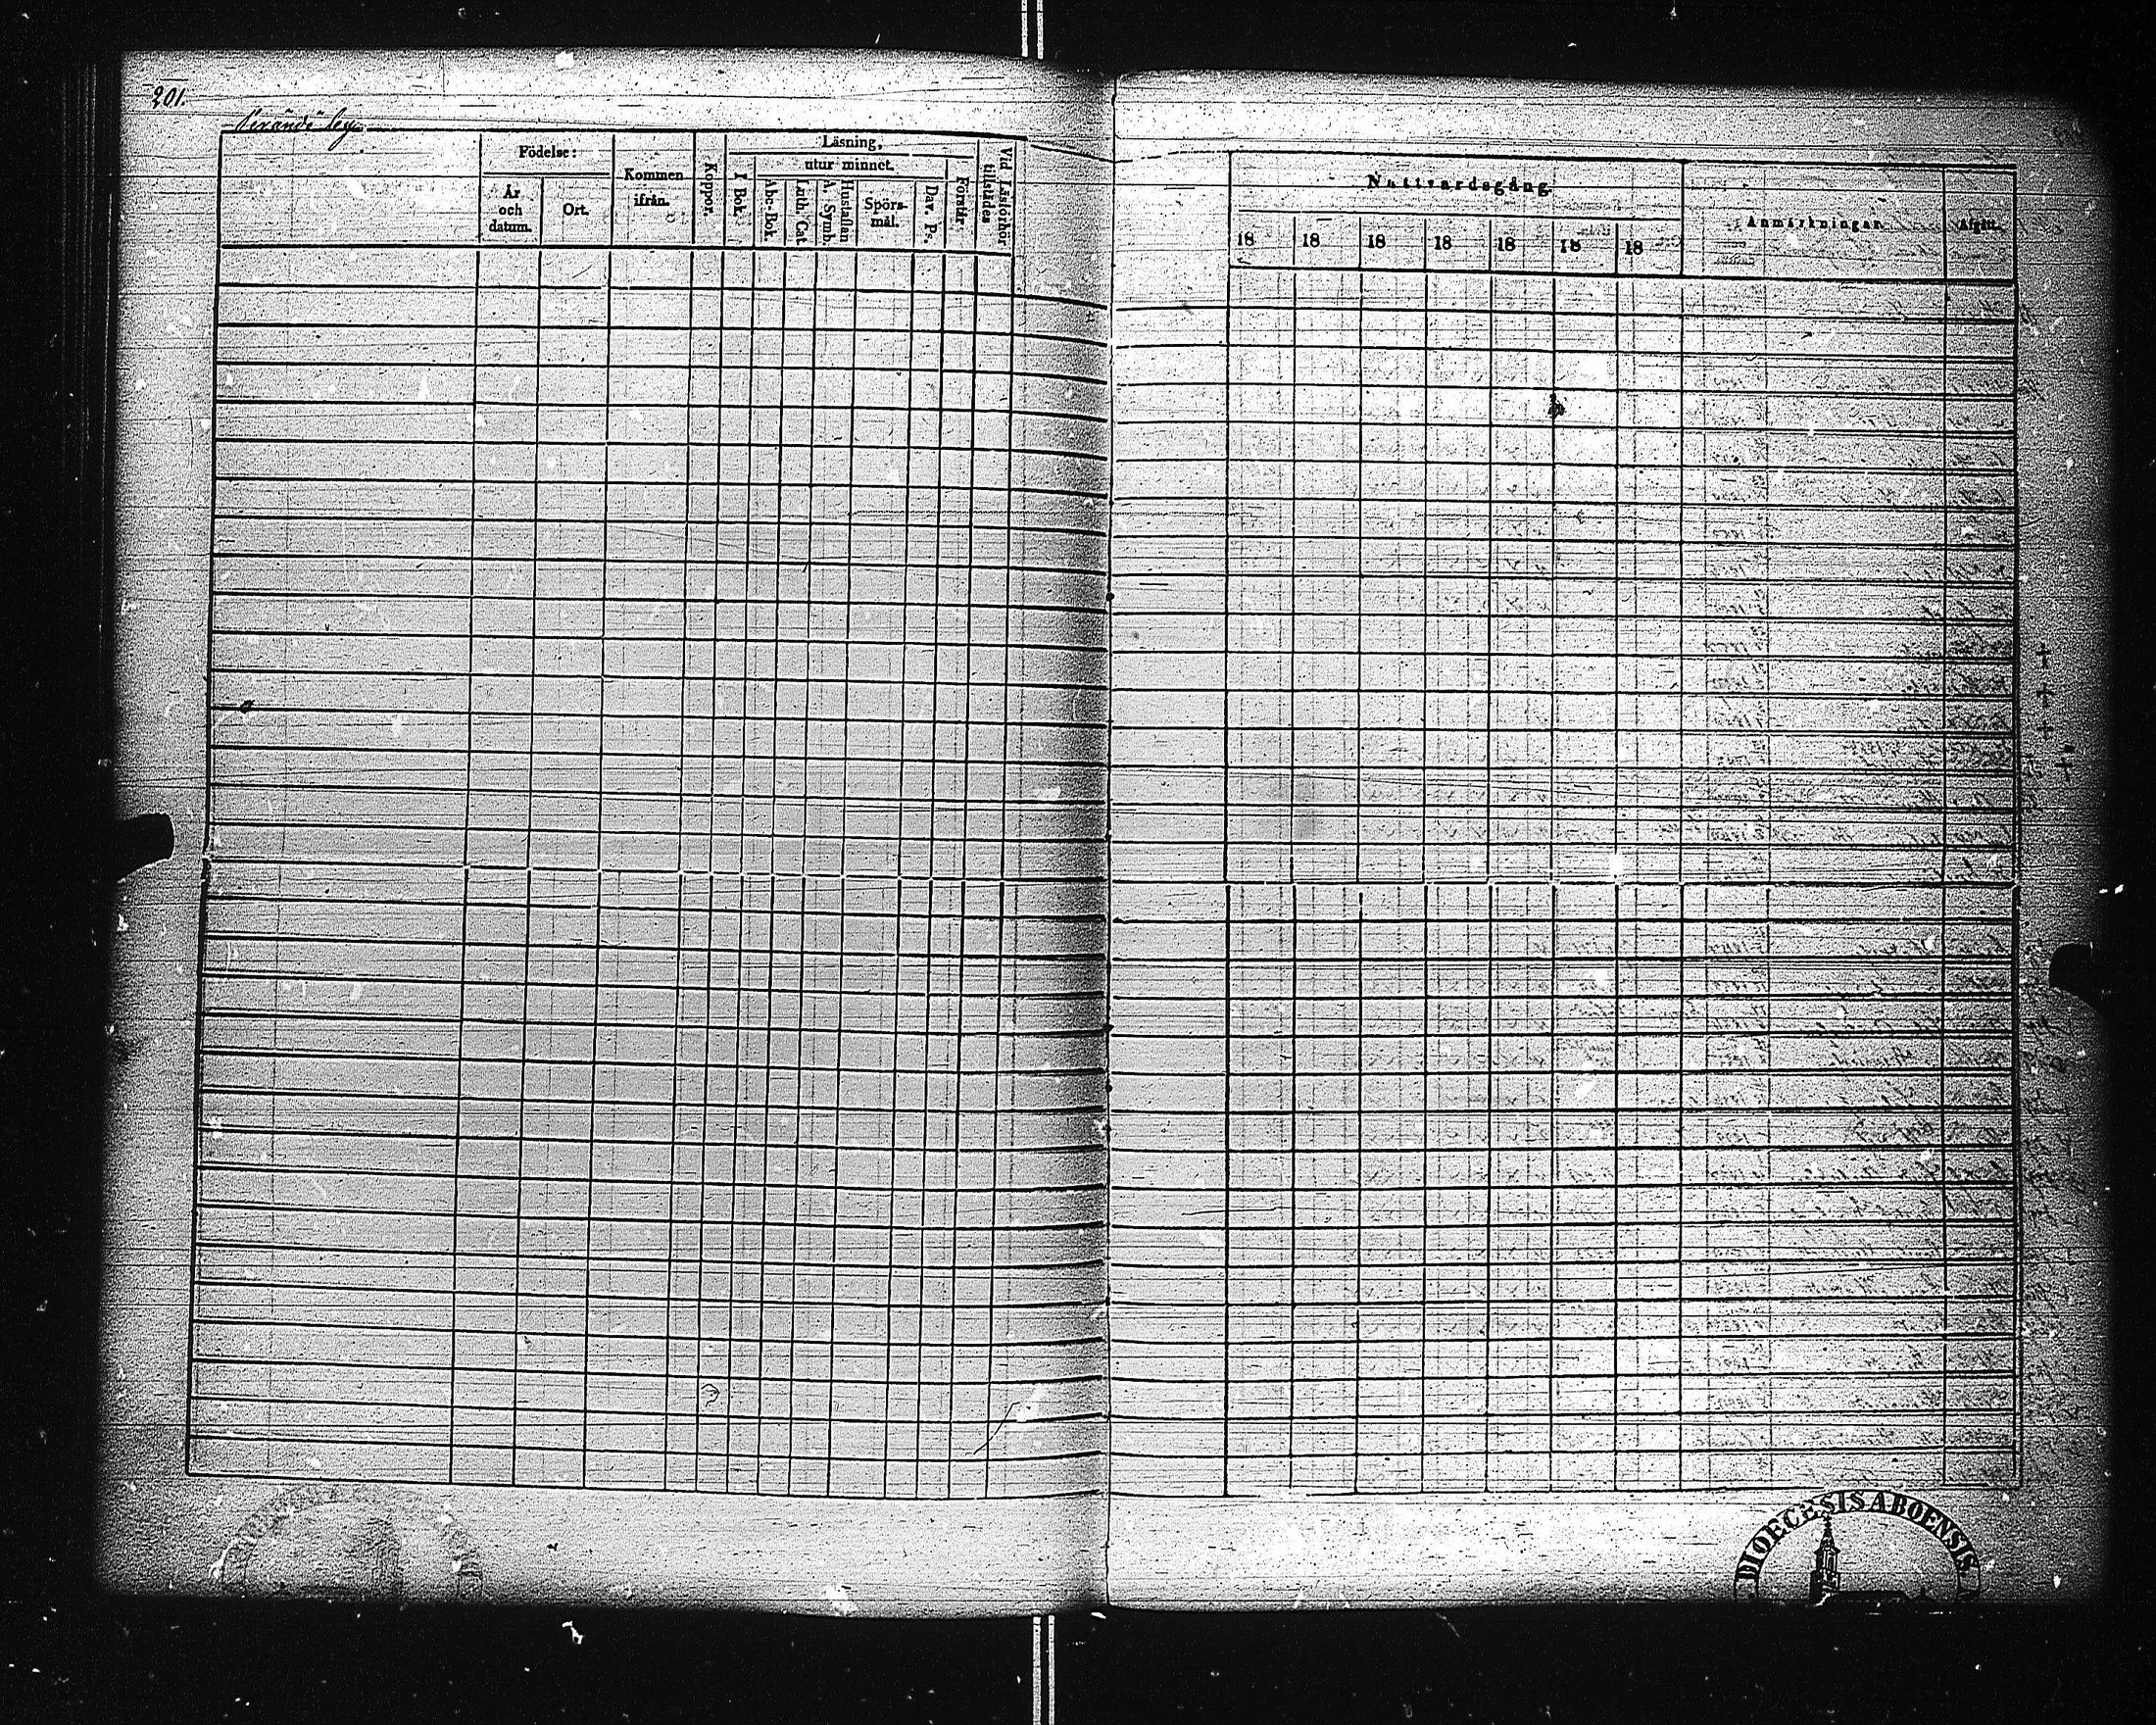 201.
Födelse:
År
och
datum.
Ort.
Kommen
ifrån.
Koppor.
Läsning,
utur minnet.
I Bok.
Abc-Bok.
Luth. Cat.
A. Symb.
Hustaflan
Spörs-
mål.
Dav. Ps.
Förstår.
Vid Läsförhör
tillstädes
Nattvardsgång.
18 18 18 18 18 18 18
Anmärkningar.
Afgått.
DIOECESIS ABOENSIS